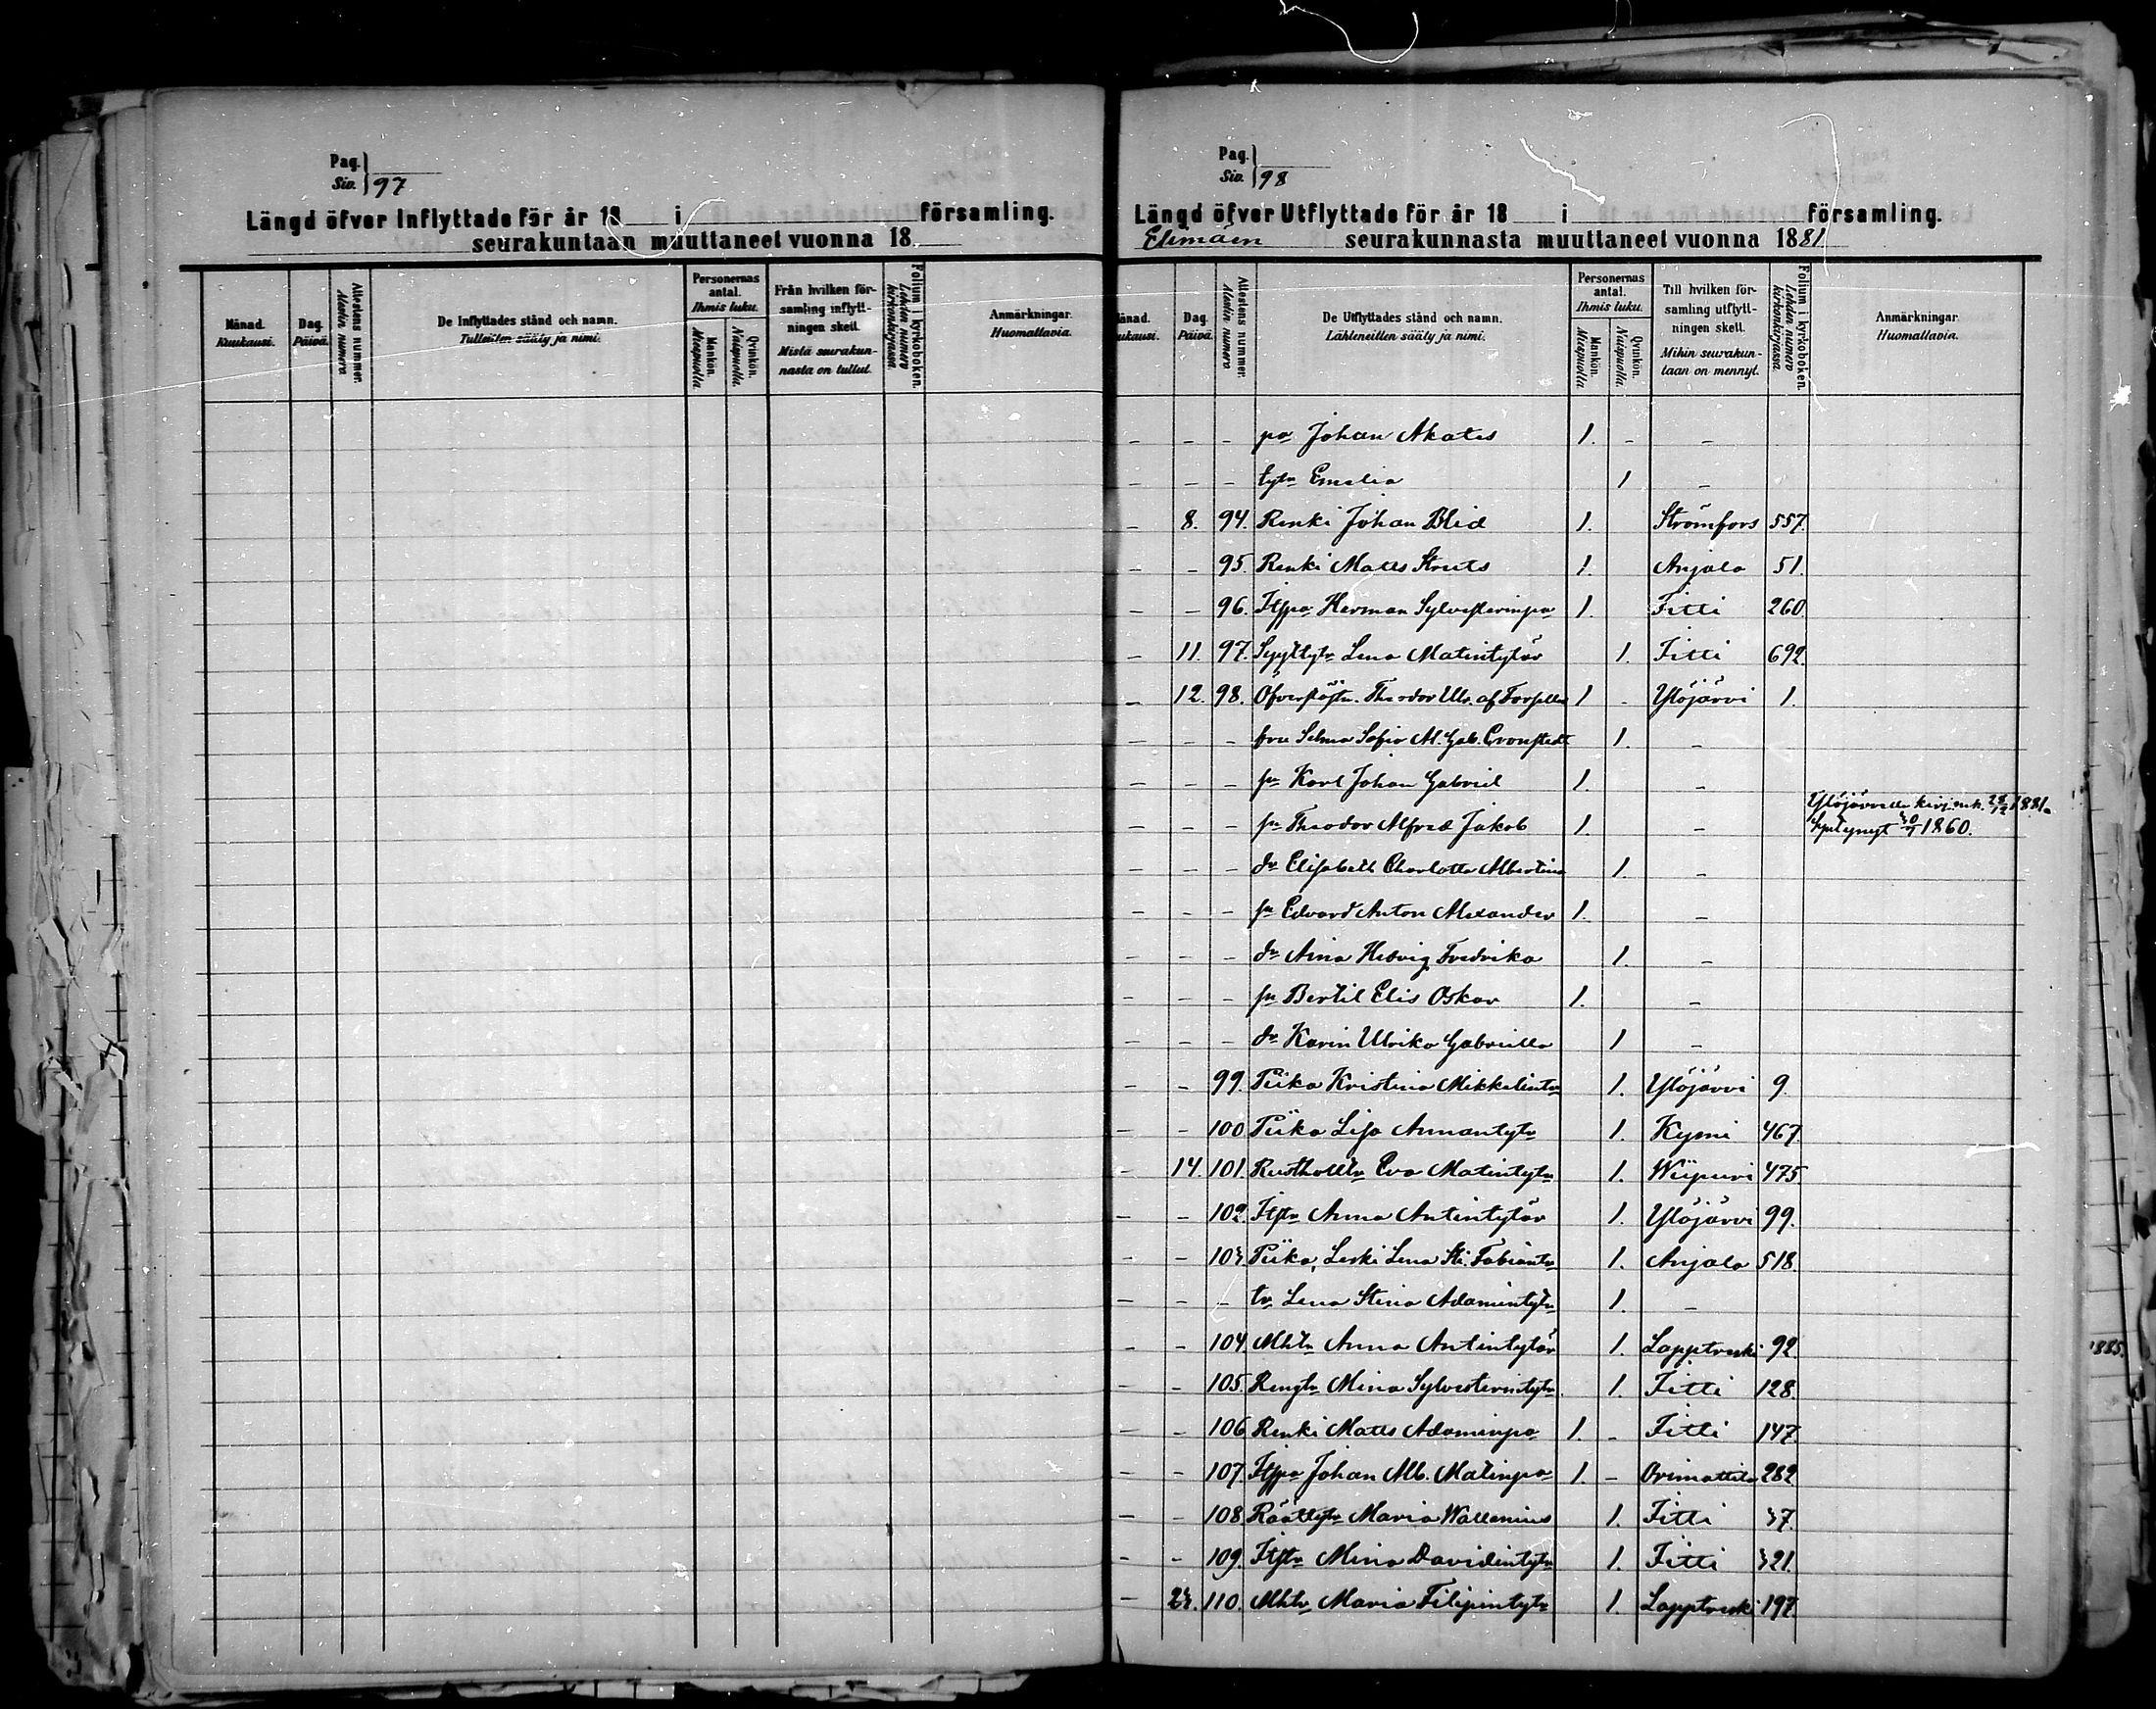 Pag.
Siv. 97
Längd öfver Inflyttade för år 18 i församling.
seurakuntaan muuttaneet vuonna 18
Månad. Kuukausi.
Dag. Päivä.
Allestens nummer. Alestin numero
De Inflyttades stånd och namn. Tulleitten sääty ja nimi.
Personernas antal. Ihmis luku.
Mankön. Miespuolia.
Qvinkön. Naispuolia.
Från hvilken församling inflyttningen skett. Mistä seurakunnasta on tullut.
Folium i kyrkoboken. Lehden numero kirkonkirjassa.
Anmärkningar. Huomattavia.
Pag.
Siv. 98
Längd öfver Utflyttade för år 18 i församling.
Elimäen seurakunnasta muuttaneet vuonna 1881
Månad. Kuukausi.
Dag. Päivä.
Allestens nummer. Alestin numero
De Utflyttades stånd och namn. Lähteneitten sääty ja nimi.
Personernas antal. Ihmis luku.
Mankön. Miespuolia.
Qvinkön. Naispuolia.
Till hvilken församling utflyttningen skett. Mihin seurakuntaan on mennyt.
Folium i kyrkoboken. Lehden numero kirkonkirjassa.
Anmärkningar. Huomattavia.
- - - pa Johan Akates 1. - -
- - - tytr Emelia 1 -
- 8. 94. Renki Johan Blid 1. Strömfors 557.
- - 95. Renki Matts Struts 1. Anjala 51.
- - 96. Itspa Herman Sylvesterinpa 1. Iitti 260.
- 11. 97. Lena Matintytär 1. Iitti 692.
- 12. 98. Theodor Ulr. af Forselles 1 - Ylöjärvi 1.
- - - fru Selma Sofia M. Gab. Cronstedt 1. -
- - - sn Karl Johan Gabriel 1. -
- - - sn Theodor Alfred Jakob 1. - Ylöjärvelle kirj. 28/12 1881.
1860.
- - - dr Elisabeth Charlotta Albertina 1. -
- - - sn Edvard Anton Alexander 1. -
- - - dr Aina Hedvig Fredrika 1. -
- - - sn Bertil Elis Oskar 1. -
- - - dr Karin Ulrika Gabriella 1 -
- - 99. Piika Kristina Mikkelintr 1. Ylöjärvi 9.
- - 100 Piika Lisa Annantytr 1. Kymi 467.
- 14. 101. Eva Matintytr 1. Wiipuri 475
- - 102. Itstr Anna Antintytär 1. Ylöjärvi 99.
- - 103 Piika, Leski Lena Sti. Fabiantr 1. Anjala 518.
- - - tr Lena Stina Adamintytr 1. -
- - 104 Mktr Anna Antintytär 1. Lapptreski 92.
- - 105. Rengtr Mina Sylvesterintytr 1. Iitti 128.
- - 106 Renki Matts Adaminpa 1. - Iitti 147.
- - 107 Itspa Johan Alb. Matinpa 1. - Orimattila 282
- - 108. Räättr Maria Wallenius 1. Iitti 37.
- - 109. Itstr Mina Davidintytr 1. Iitti 321.
- 23. 110. Mktr Maria Filipintytr 1. Lapptreski 197.
1885.